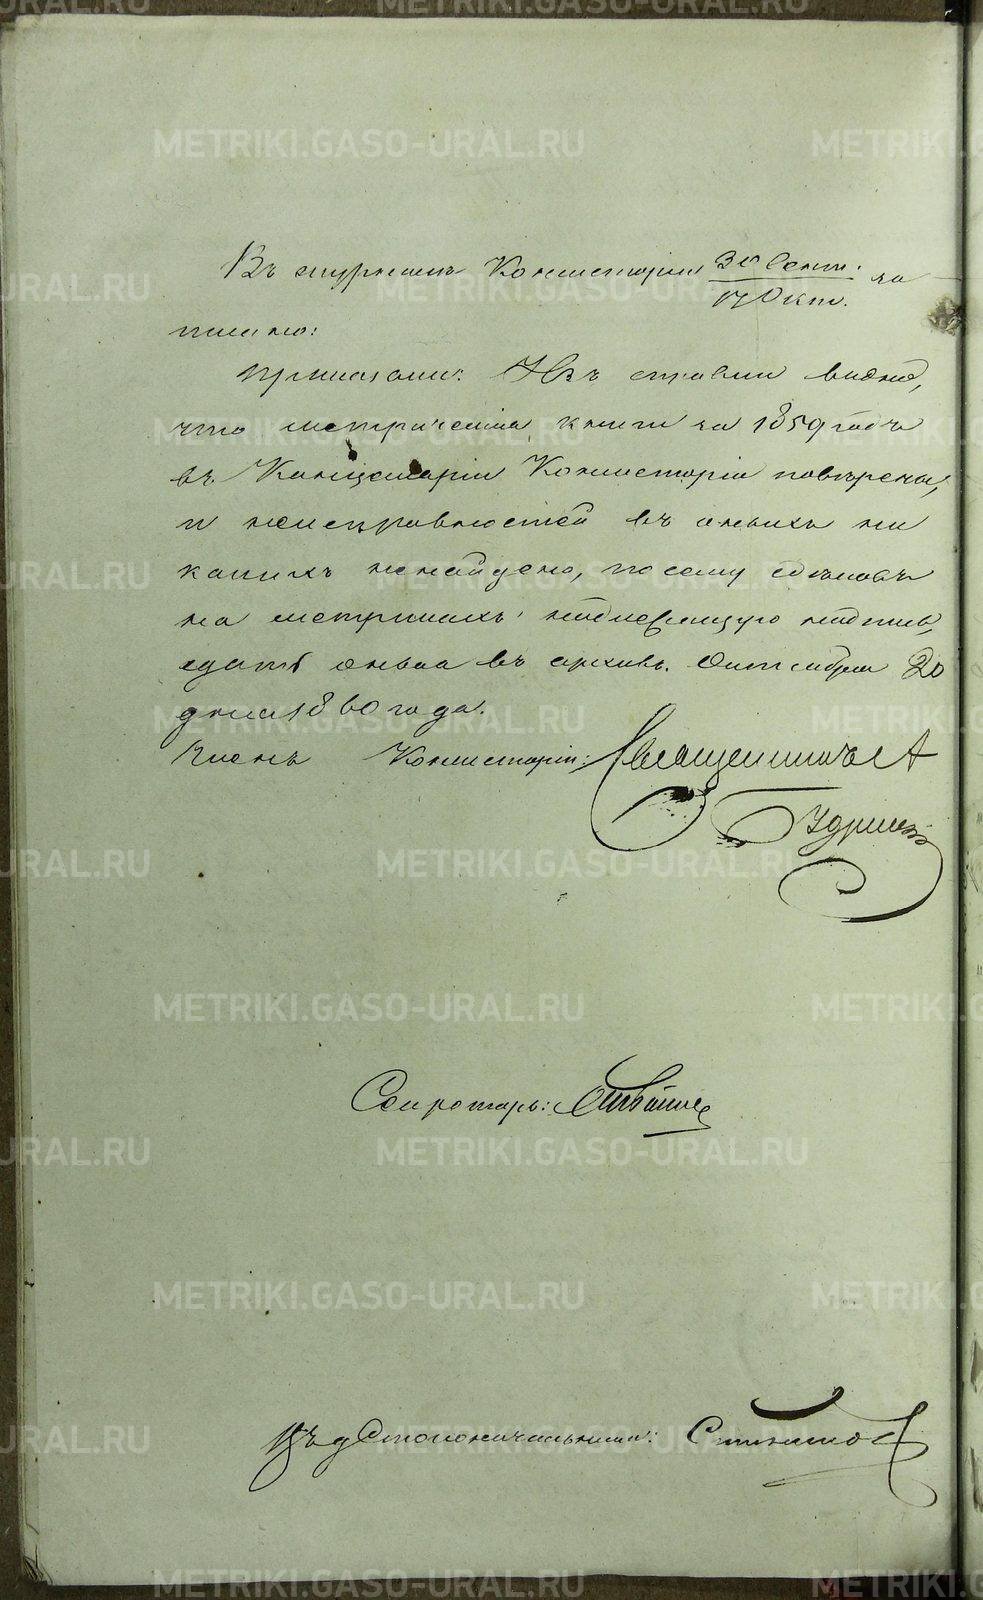 Въ журналѣ Консисторіи 30 Сент. за
17 Окт.
писано:
приказали: Изъ справки видно,
что метрическія книги за 1859 годъ
въ Канцеляріи Консисторіи повѣрены,
и неисправностей въ оныхъ ни
какихъ ненайдено, посему сдѣлавъ
на метрикахъ надлежащую надпись,
сдать оныя въ архивъ. Октября 20
дня 1860 года.
Членъ Консисторіи: Священникъ А
Секретарь:
Столоначальника:
METRIKI.GASO-URAL.RU